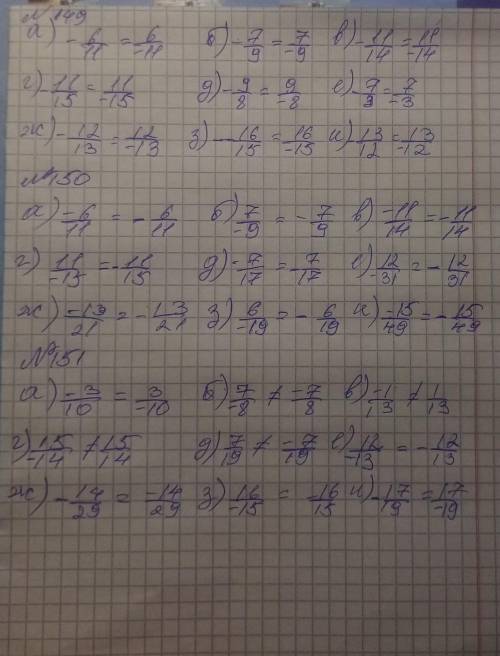 №149
а) -6/11 = 6/-11 б) -7/9 = 7/-9 в) -11/14 = 11/-14
г) -11/15 = 11/-15 д) -9/8 = 9/-8 е) -7/3 = 7/-3
ж) -12/13 = 12/-13 з) -16/15 = 16/-15 и) -13/12 = 13/-12
№150
а) -6/11 = -6/11 б) 7/-9 = -7/9 в) -11/14 = -11/14
г) 11/-15 = -11/15 д) -7/17 = -7/17 е) 12/-31 = -12/31
ж) -13/21 = -13/21 з) 6/-19 = -6/19 и) -15/49 = -15/49
№151
а) -3/10 = 3/-10 б) 7/-8 ≠ -7/8 в) -1/13 ≠ 1/13
г) 15/-14 ≠ 15/14 д) 7/19 ≠ -7/19 е) 12/-13 = -12/13
ж) -14/29 = -14/29 з) 16/-15 = 16/15 и) -17/19 = 17/-19